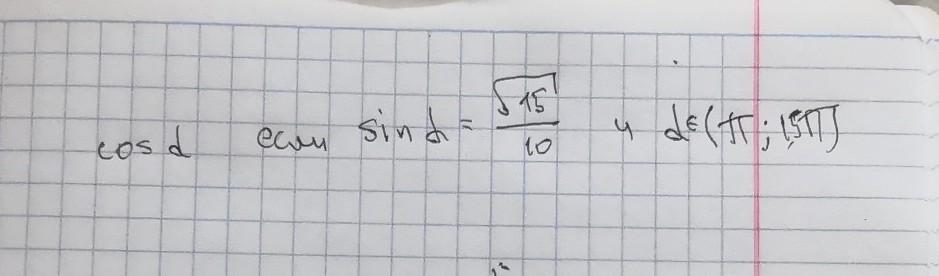 cos α если sin α = √15/10 и α∈(π; 1,5π)